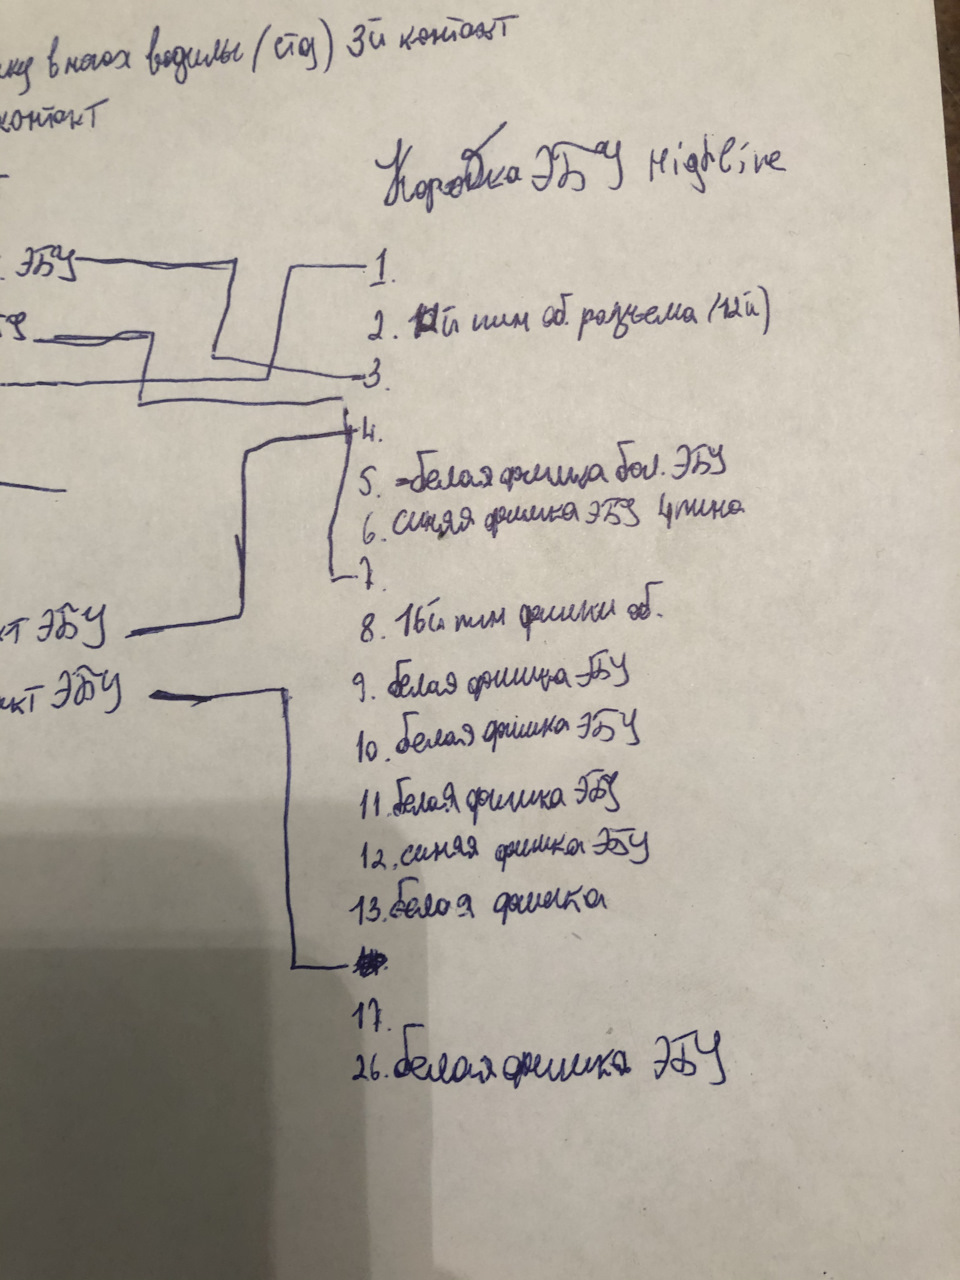 в ногах водилы (стд) 3й контакт
контакт
Коробка ЭБУ Highline
ЭБУ
1.
2. 12й пин об. разъема (12й)
3.
4.
5. белая фишка бол. ЭБУ
6. синяя фишка ЭБУ 4 пина
7.
8. 16й пин фишки об.
ЭБУ
9. белая фишка ЭБУ
ЭБУ
10. белая фишка ЭБУ
11. белая фишка ЭБУ
12. синяя фишка ЭБУ
13. белая фишка
17.
26. белая фишка ЭБУ